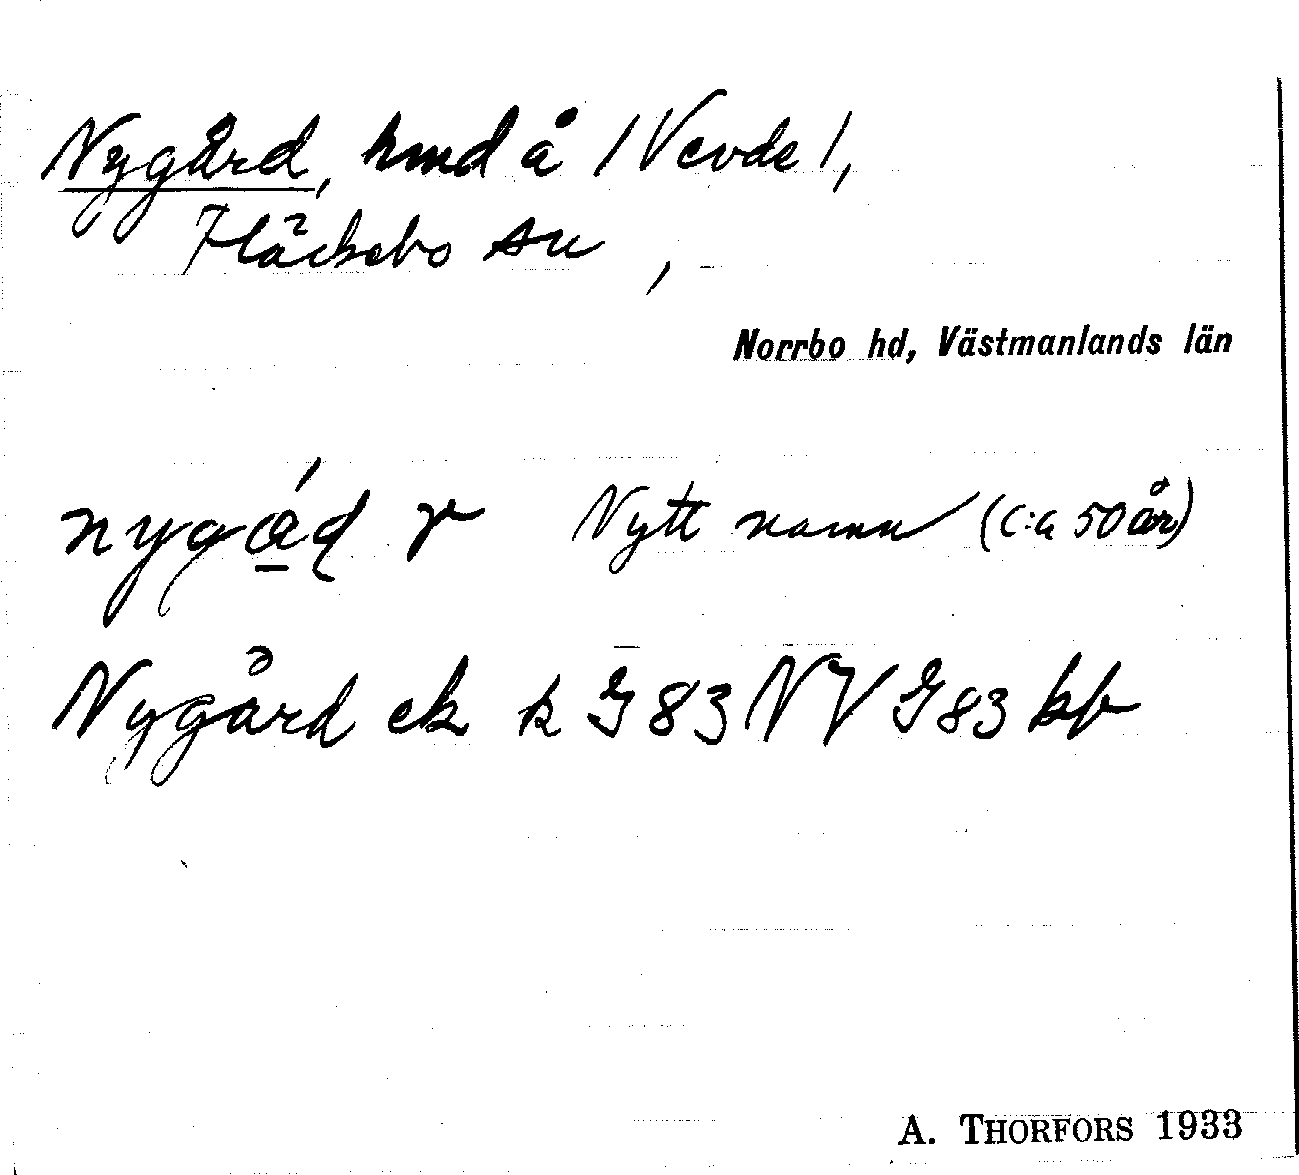 Nygård, hmd å /Vevde/,
Fläckebo sn,
Norrbo hd, Västmanlands län
nygǻḍ r Nytt namn (c:a 50 år)
Nygård ek k G 83 NV G 83 kb
A. THORFORS 1933